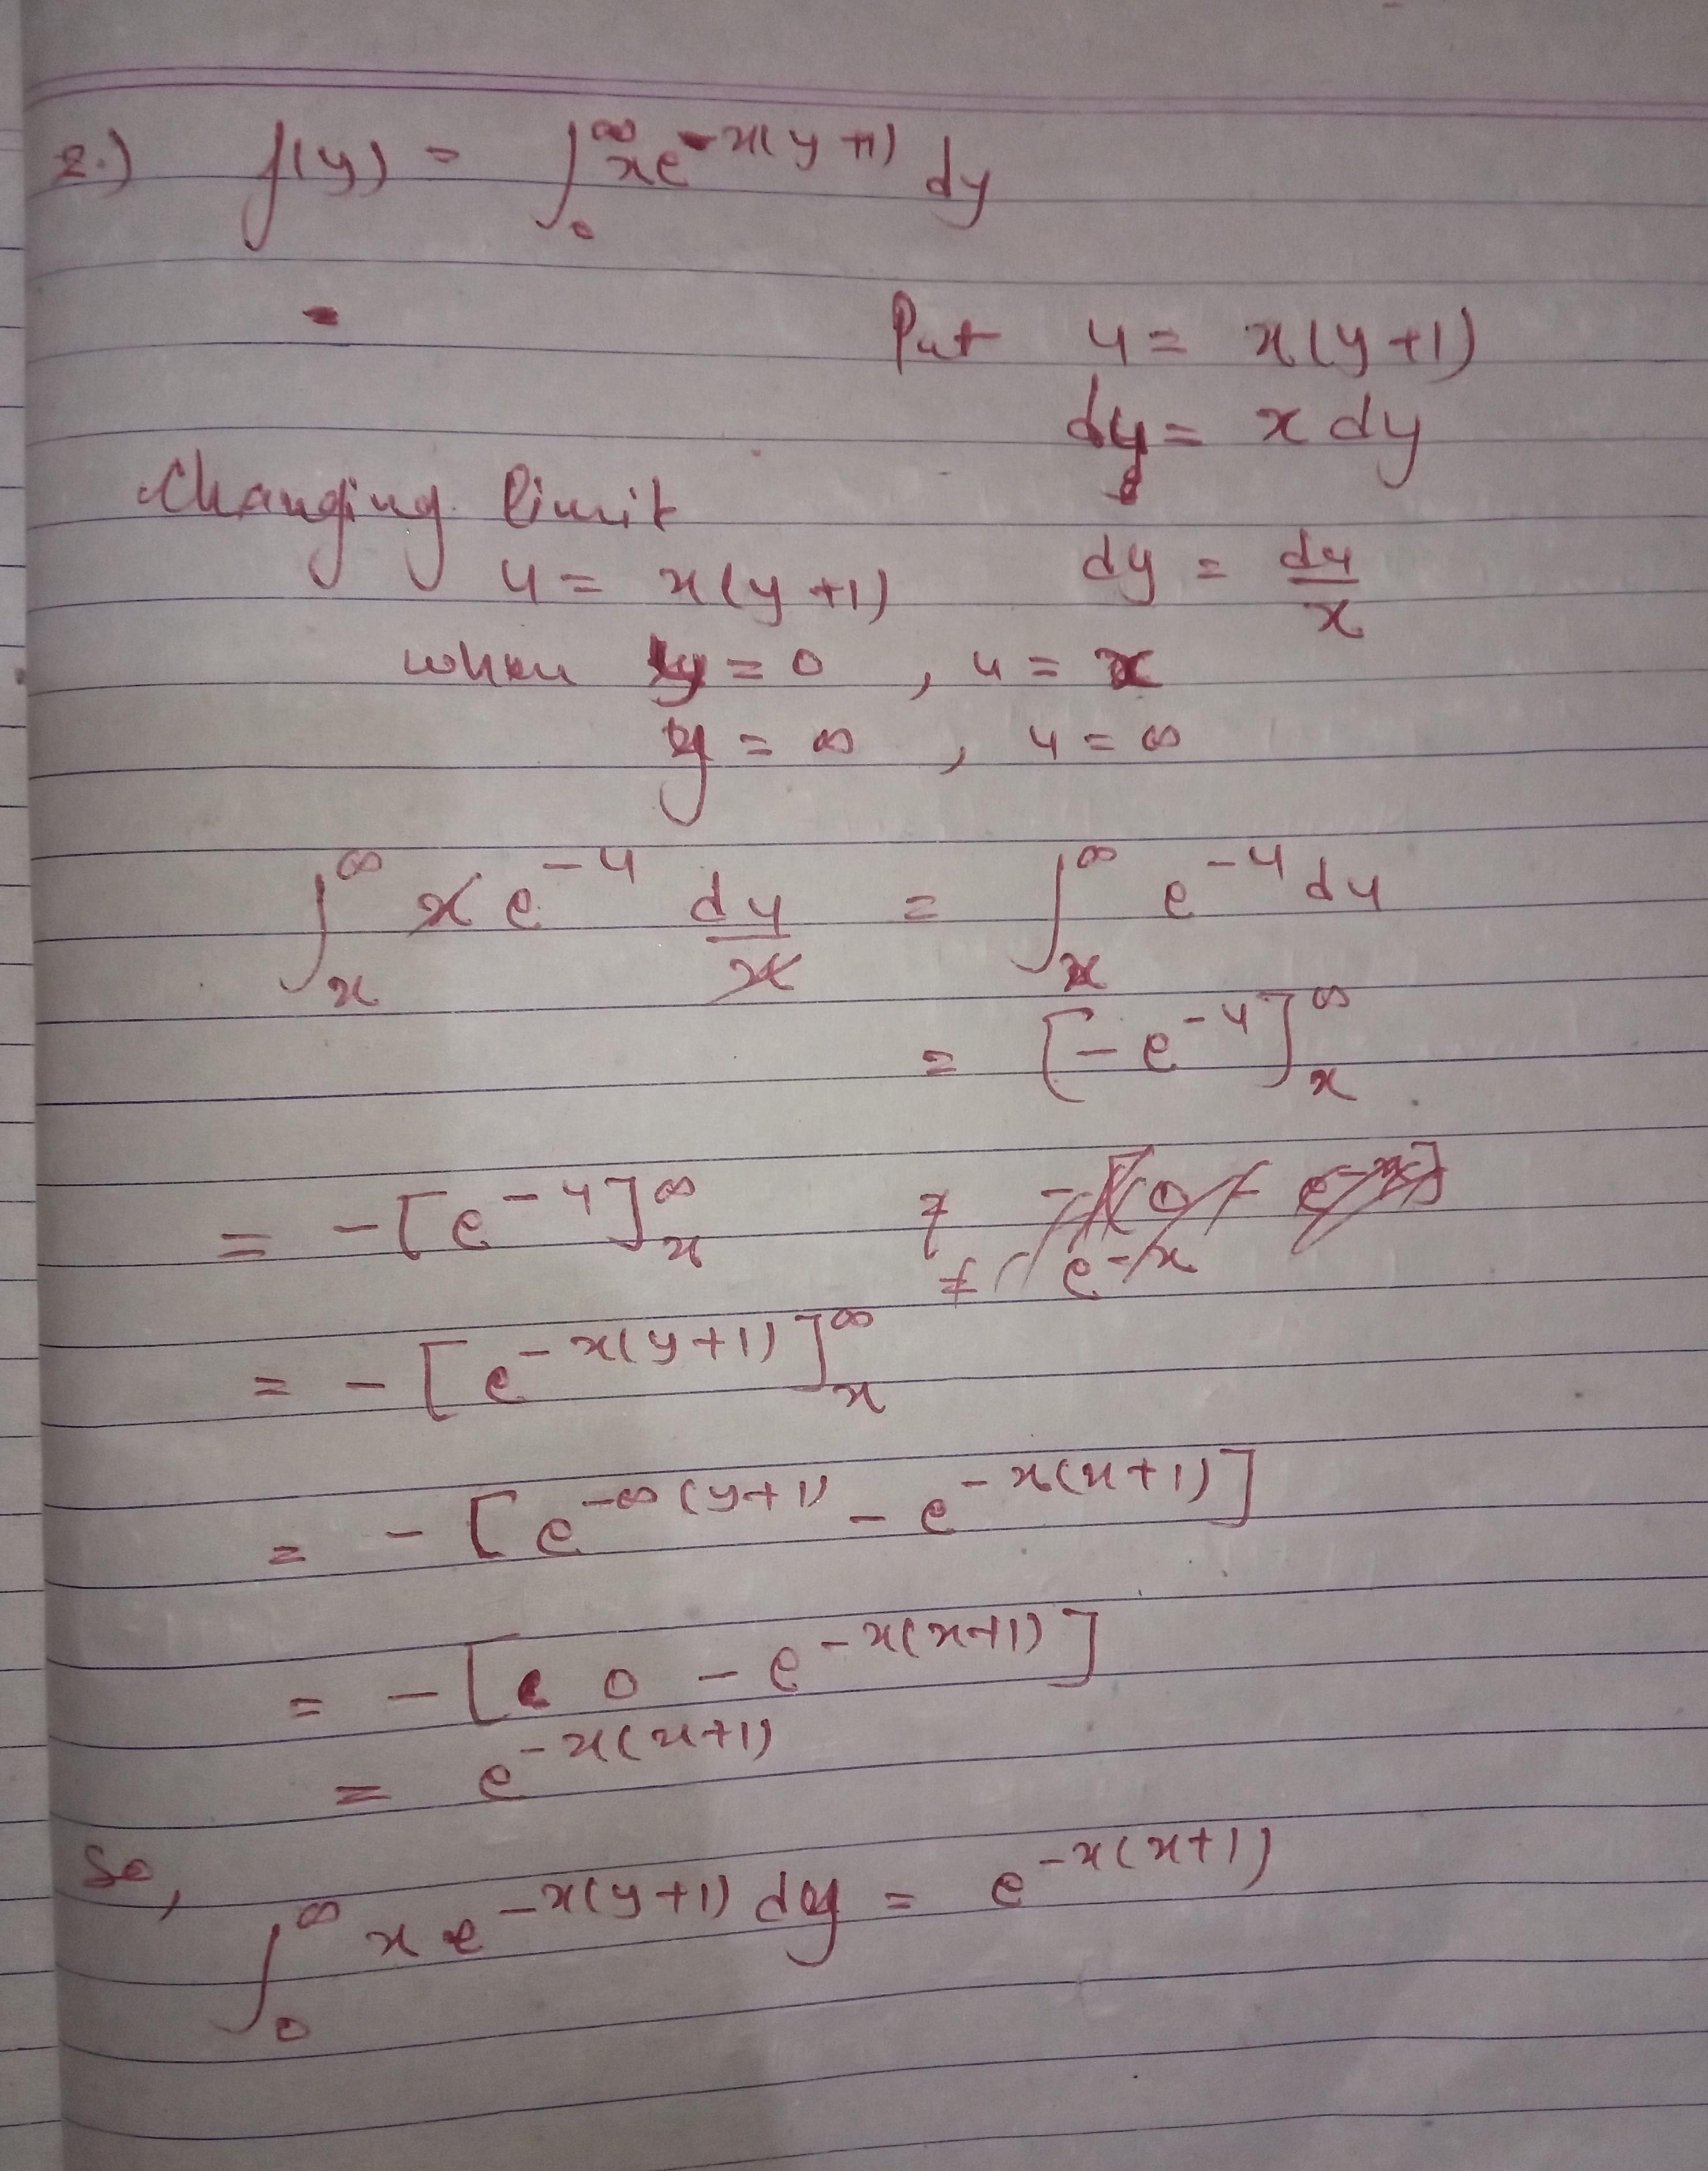 2.) f(y) = ∫₀^∞ xe^{-x(y+1)} dy
Put u = x(y+1)
du = x dy
Changing limit
u = x(y+1) dy = du/x
when y = 0 , u = x
y = ∞ , u = ∞
∫ₓ^∞ x e^{-u} du/x = ∫ₓ^∞ e^{-u} du
= [-e^{-u}]ₓ^∞
= -[e^{-u}]ₓ^∞
= -[e^{-x(y+1)}]ₓ^∞
= -[e^{-∞(y+1)} - e^{-x(x+1)}]
= -[0 - e^{-x(x+1)}]
= e^{-x(x+1)}
So,
∫₀^∞ x e^{-x(y+1)} dy = e^{-x(x+1)}